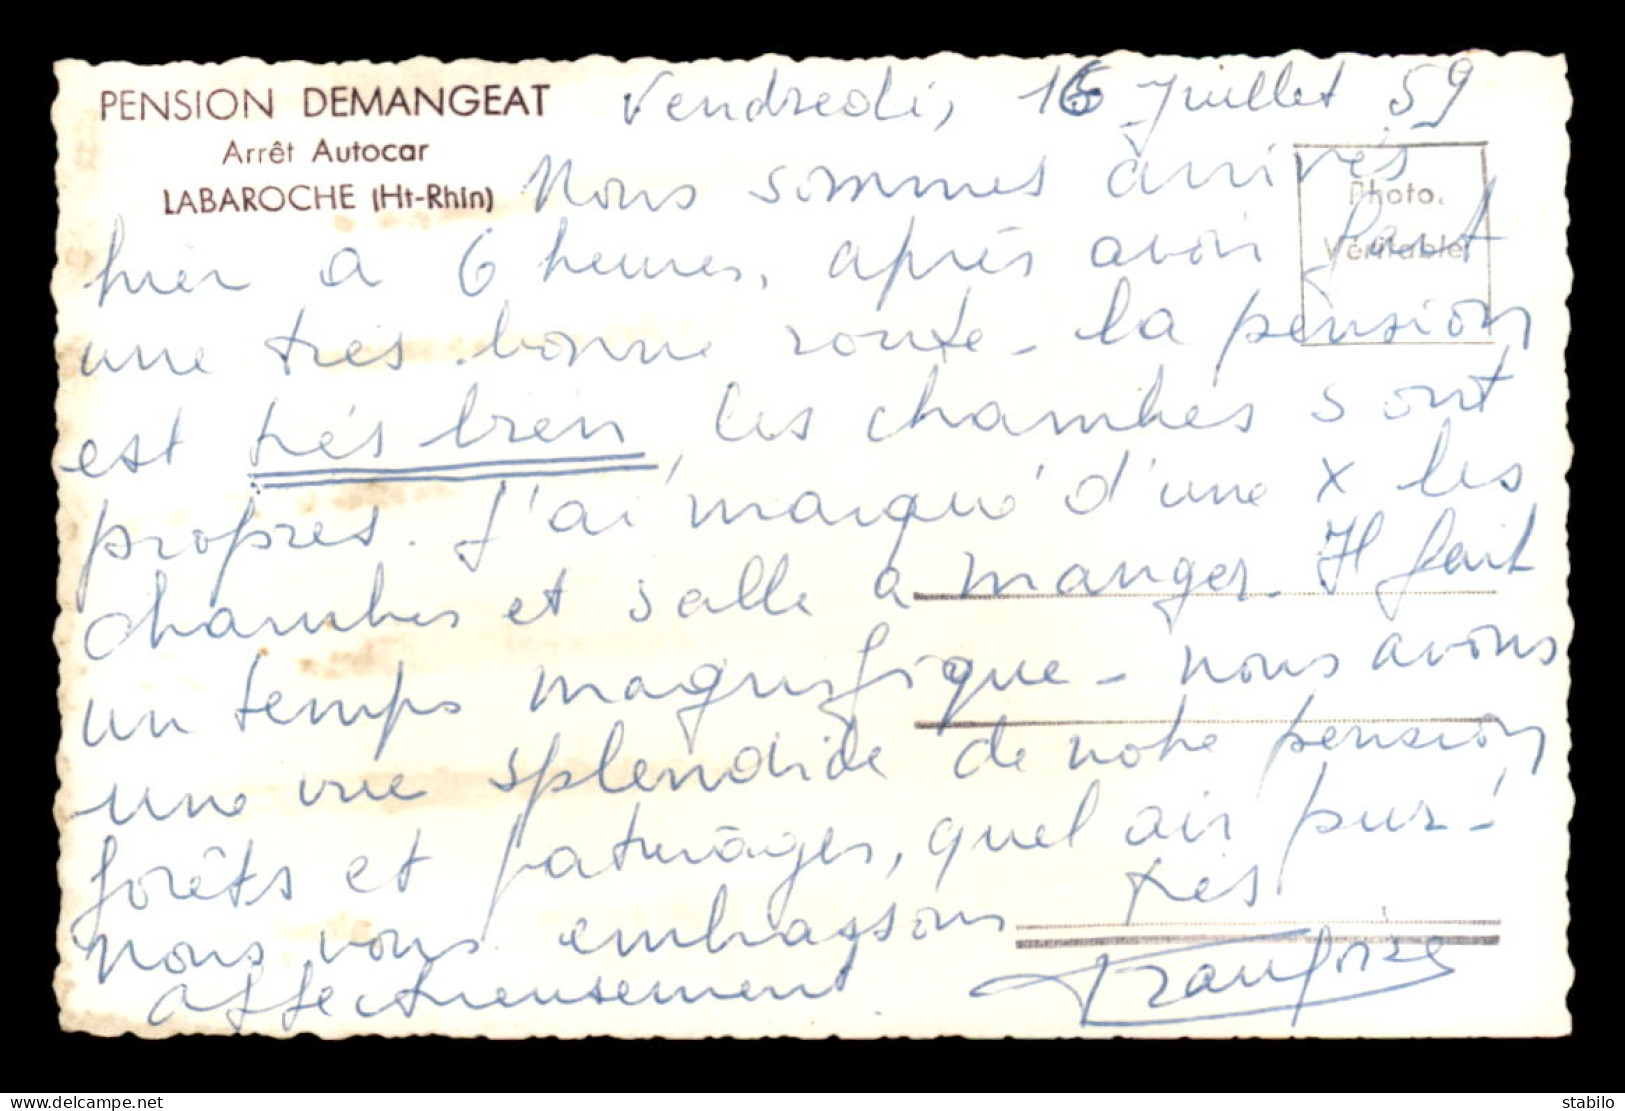 PENSION DEMANGEAT
Arrêt Autocar
LABAROCHE (Ht-Rhin)
Photo.
Véritable
Vendredi, Juillet 59
Nous sommes arrivés
hier a 6 heures, après avoir fait
une très bonne route - la pension
est très bien, les chambres sont
propres. J'ai marqué d'une x les
chambres et salle a manger. Il fait
un temps magnifique - nous avons
une vue splendide de notre pension
forêts et paturâges, quel air pur !
nous vous embrassons très
affectueusement Françoise
www.delcampe.net
stabilo